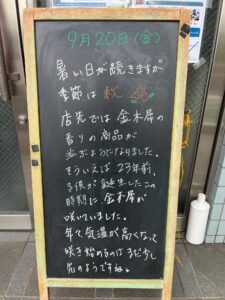 9月20日(金)
暑い日が続きますが
季節は秋
店先では金木犀の
香りの商品が
並ぶようになりました。
そういえば23年前、
子供が誕生したこの
時期に金木犀が
咲いていました。
年々気温が高くなって
咲き始めるのはまだ少し
先のようですね。